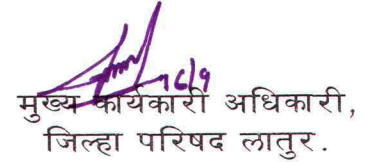 मुख्य कार्यकारी अधिकारी,
जिल्हा परिषद लातुर.